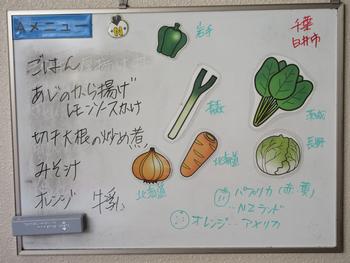 Aメニュー
ごはん
あじのから揚げ
レモンソースかけ
切干大根の炒め煮
みそ汁
オレンジ 牛乳
岩手
千葉
白井市
茨城
北海道
長野
北海道
パプリカ(赤・黄)
‥NZランド
オレンジ‥アメリカ